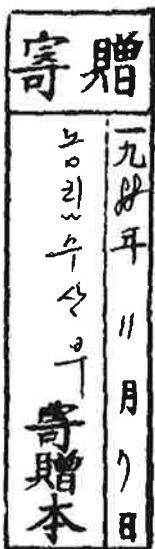 寄贈
一九 年 11月 7日
농림수산부 寄贈本